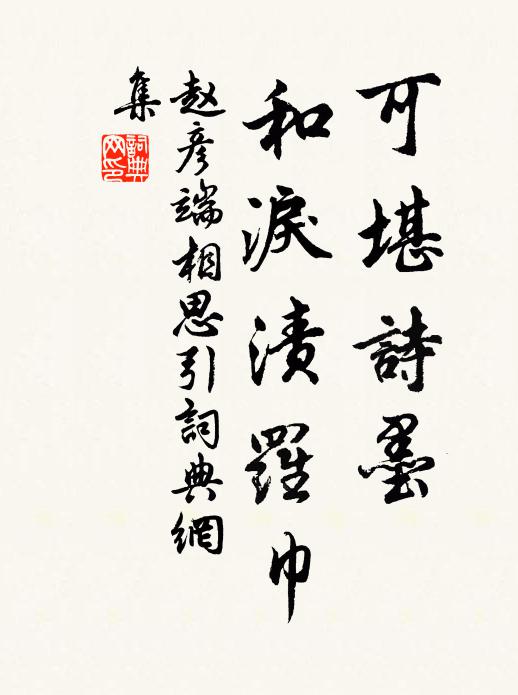 可堪詩墨
和淚漬羅巾
赵彦端相思引詞典網
集
詞典網印